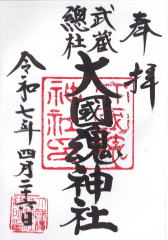 奉拝
武蔵
總社
大國魂神社
令和七年四月二十六日